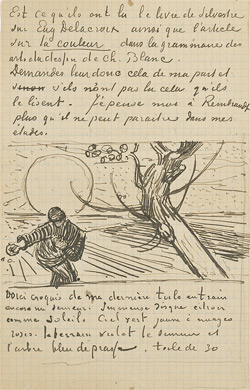 Est ce qu'ils ont lu le livre de Silvestre
sur Eug Delacroix ainsi que l'article
sur la couleur dans la grammaire des
arts du dessin de Ch. Blanc.
Demandez leur donc cela de ma part et
sinon s'ils n'ont pas lu cela qu'ils
le lisent. j'pense moi à Rembrandt
plus qu'il ne peut paraitre dans mes
études.
Voici croquis de ma dernière toile en train
encore un semeur. Immense disque citron
comme soleil. Ciel vert jaune à nuages
roses. le terrain violet le semeur et
l'arbre bleu de prusse. toile de 30